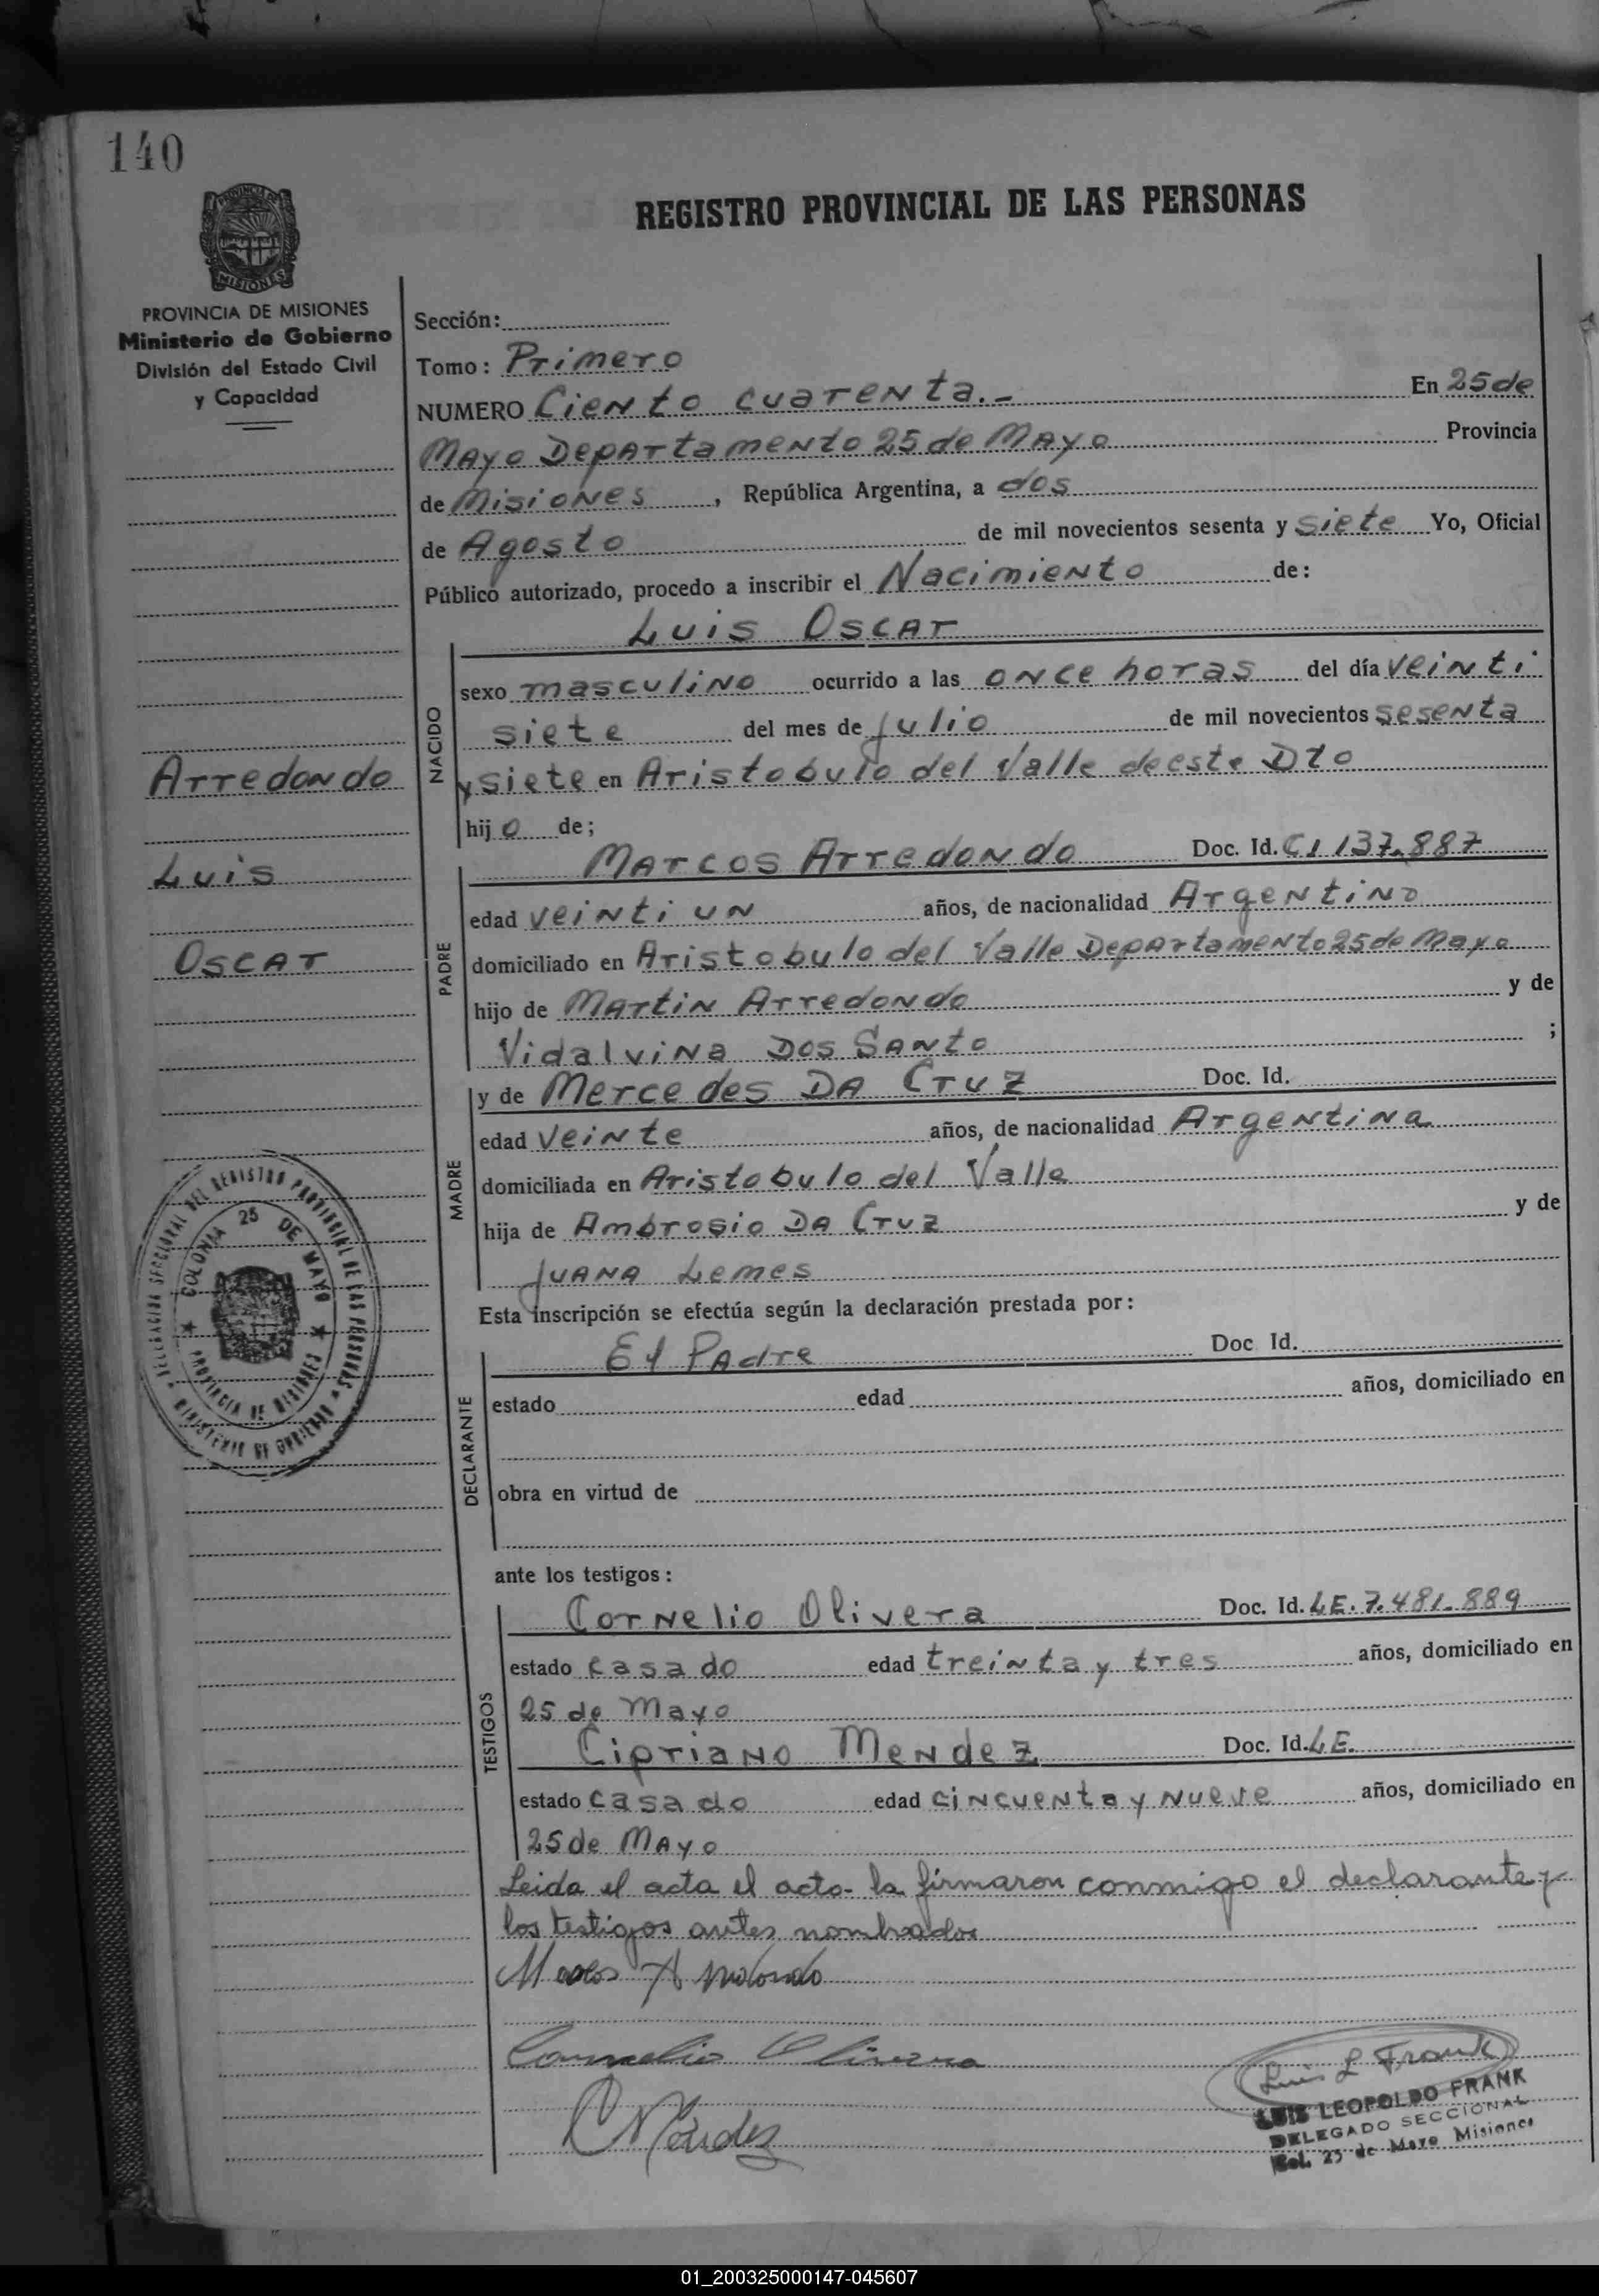 140
REGISTRO PROVINCIAL DE LAS PERSONAS
PROVINCIA DE
MISIONES
PROVINCIA DE MISIONES
Ministerio de Gobierno
División del Estado Civil
y Capacidad
Sección:
Tomo: Primero
NUMERO Ciento cuarenta.- En 25 de
Mayo Departamento 25 de Mayo Provincia
de Misiones, República Argentina, a dos
de Agosto de mil novecientos sesenta y siete Yo, Oficial
Público autorizado, procedo a inscribir el Nacimiento de:
Luis Oscar
NACIDO
sexo masculino ocurrido a las once horas del día veinti
siete del mes de Julio de mil novecientos sesenta
y siete en Aristobulo del Valle de este Dto
hijo de;
Arredondo
Luis
Oscar
PADRE
Marcos Arredondo Doc. Id. CI 137.887
edad veinti un años, de nacionalidad Argentino
domiciliado en Aristobulo del Valle Departamento 25 de Mayo
hijo de Martin Arredondo y de
Vidalvina Dos Santo ;
MADRE
y de Mercedes Da Cruz Doc. Id.
edad veinte años, de nacionalidad Argentina
domiciliada en Aristobulo del Valle
hija de Ambrosio Da Cruz y de
Juana Lemes
DELEGACION SECCIONAL DEL REGISTRO PROVINCIAL DE LAS PERSONAS
MINISTERIO DE GOBIERNO
COLONIA 25 DE MAYO
PROVINCIA DE MISIONES
Esta inscripción se efectúa según la declaración prestada por:
DECLARANTE
El Padre Doc. Id.
estado edad años, domiciliado en
obra en virtud de
ante los testigos:
TESTIGOS
Cornelio Olivera Doc. Id. LE. 7.481.889
estado casado edad treinta y tres años, domiciliado en
25 de Mayo
Cipriano Mendez Doc. Id. LE.
estado casado edad cincuenta y nueve años, domiciliado en
25 de Mayo
Leida el acta el acto- la firmaron conmigo el declarante y
los testigos antes nombrados
Marcos Arredondo
Cornelio Olivera
C Méndez
Luis L Frank
LUIS LEOPOLDO FRANK
DELEGADO SECCIONAL
Col. 25 de Mayo Misiones
01_200325000147-045607